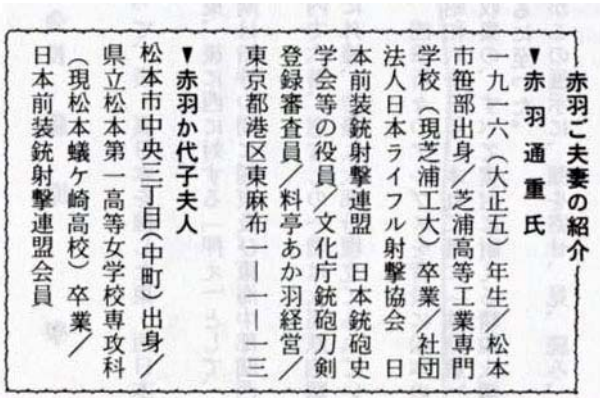 赤羽ご夫妻の紹介
▼赤羽通重氏
一九一六（大正五）年生／松本
市笹部出身／芝浦高等工業専門
学校（現芝浦工大）卒業／社団
法人日本ライフル射撃協会 日
本前装銃射撃連盟 日本銃砲史
学会等の役員／文化庁銃砲刀剣
登録審査員／料亭あか羽経営／
東京都港区東麻布一―一―一三
▼赤羽か代子夫人
松本市中央三丁目（中町）出身／
県立松本第一高等女学校専攻科
（現松本蟻ヶ崎高校）卒業／
日本前装銃射撃連盟会員